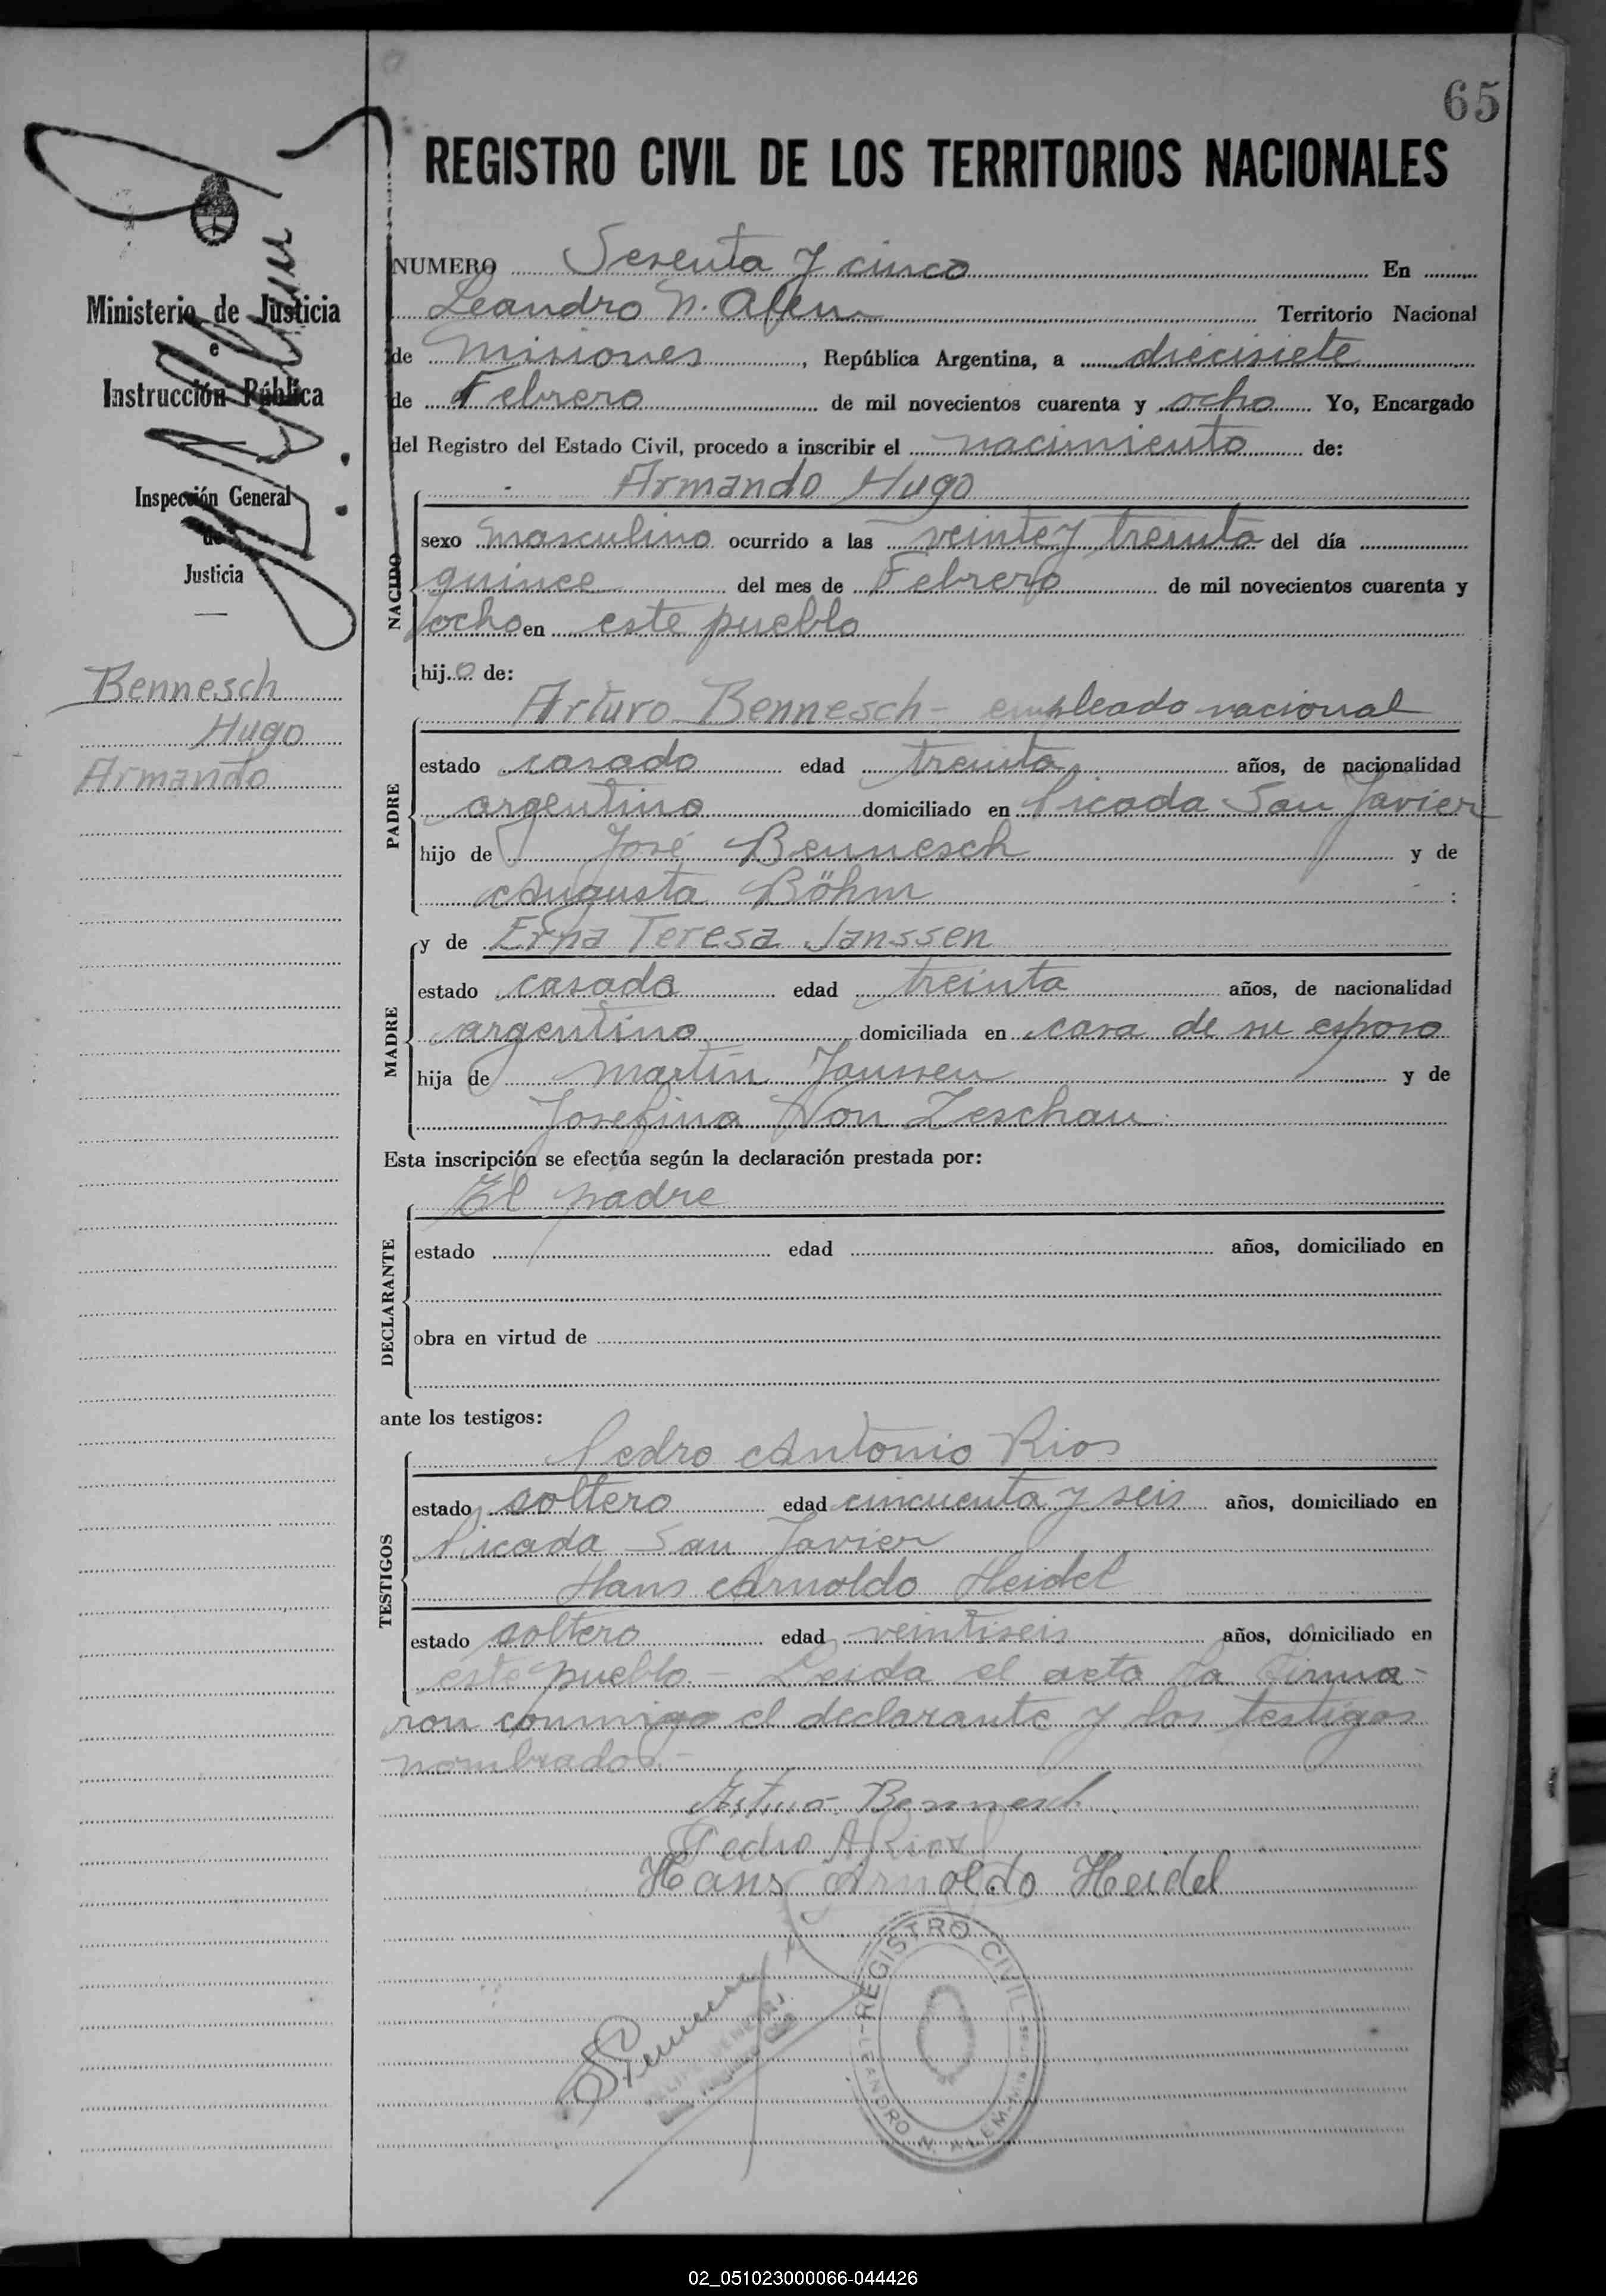 65
REGISTRO CIVIL DE LOS TERRITORIOS NACIONALES
Ministerio de Justicia
e
Instrucción Pública
Inspección General
de
Justicia
Bennesch
Hugo
Armando
NUMERO Sesenta y cinco En
Leandro N. Alem Territorio Nacional
de Misiones, República Argentina, a diecisiete
de Febrero de mil novecientos cuarenta y ocho Yo, Encargado
del Registro del Estado Civil, procedo a inscribir el nacimiento de:
NACIDO
Armando Hugo
sexo masculino ocurrido a las veinte y treinta del día
quince del mes de Febrero de mil novecientos cuarenta y
ocho en este pueblo
hijo de:
PADRE
Arturo Bennesch - empleado nacional
estado casado edad treinta años, de nacionalidad
argentina domiciliado en Picada San Javier
hijo de José Bennesch y de
Augusta Böhm :
MADRE
y de Erna Teresa Janssen
estado casada edad treinta años, de nacionalidad
argentina domiciliada en casa de su esposo
hija de Martín Janssen y de
Josefina Von Zeschau
Esta inscripción se efectúa según la declaración prestada por:
DECLARANTE
El padre
estado edad años, domiciliado en
obra en virtud de
ante los testigos:
TESTIGOS
Pedro Antonio Rios
estado soltero edad cincuenta y seis años, domiciliado en
Picada San Javier
Hans Arnoldo Heidel
estado soltero edad veintiseis años, domiciliado en
este pueblo. - Leida el acta la firma-
ron conmigo el declarante y los testigos
nombrados.-
Arturo Bennesch
Pedro A Rios
Hans Arnoldo Heidel
REGISTRO CIVIL
LEANDRO N. ALEM
02_051023000066-044426